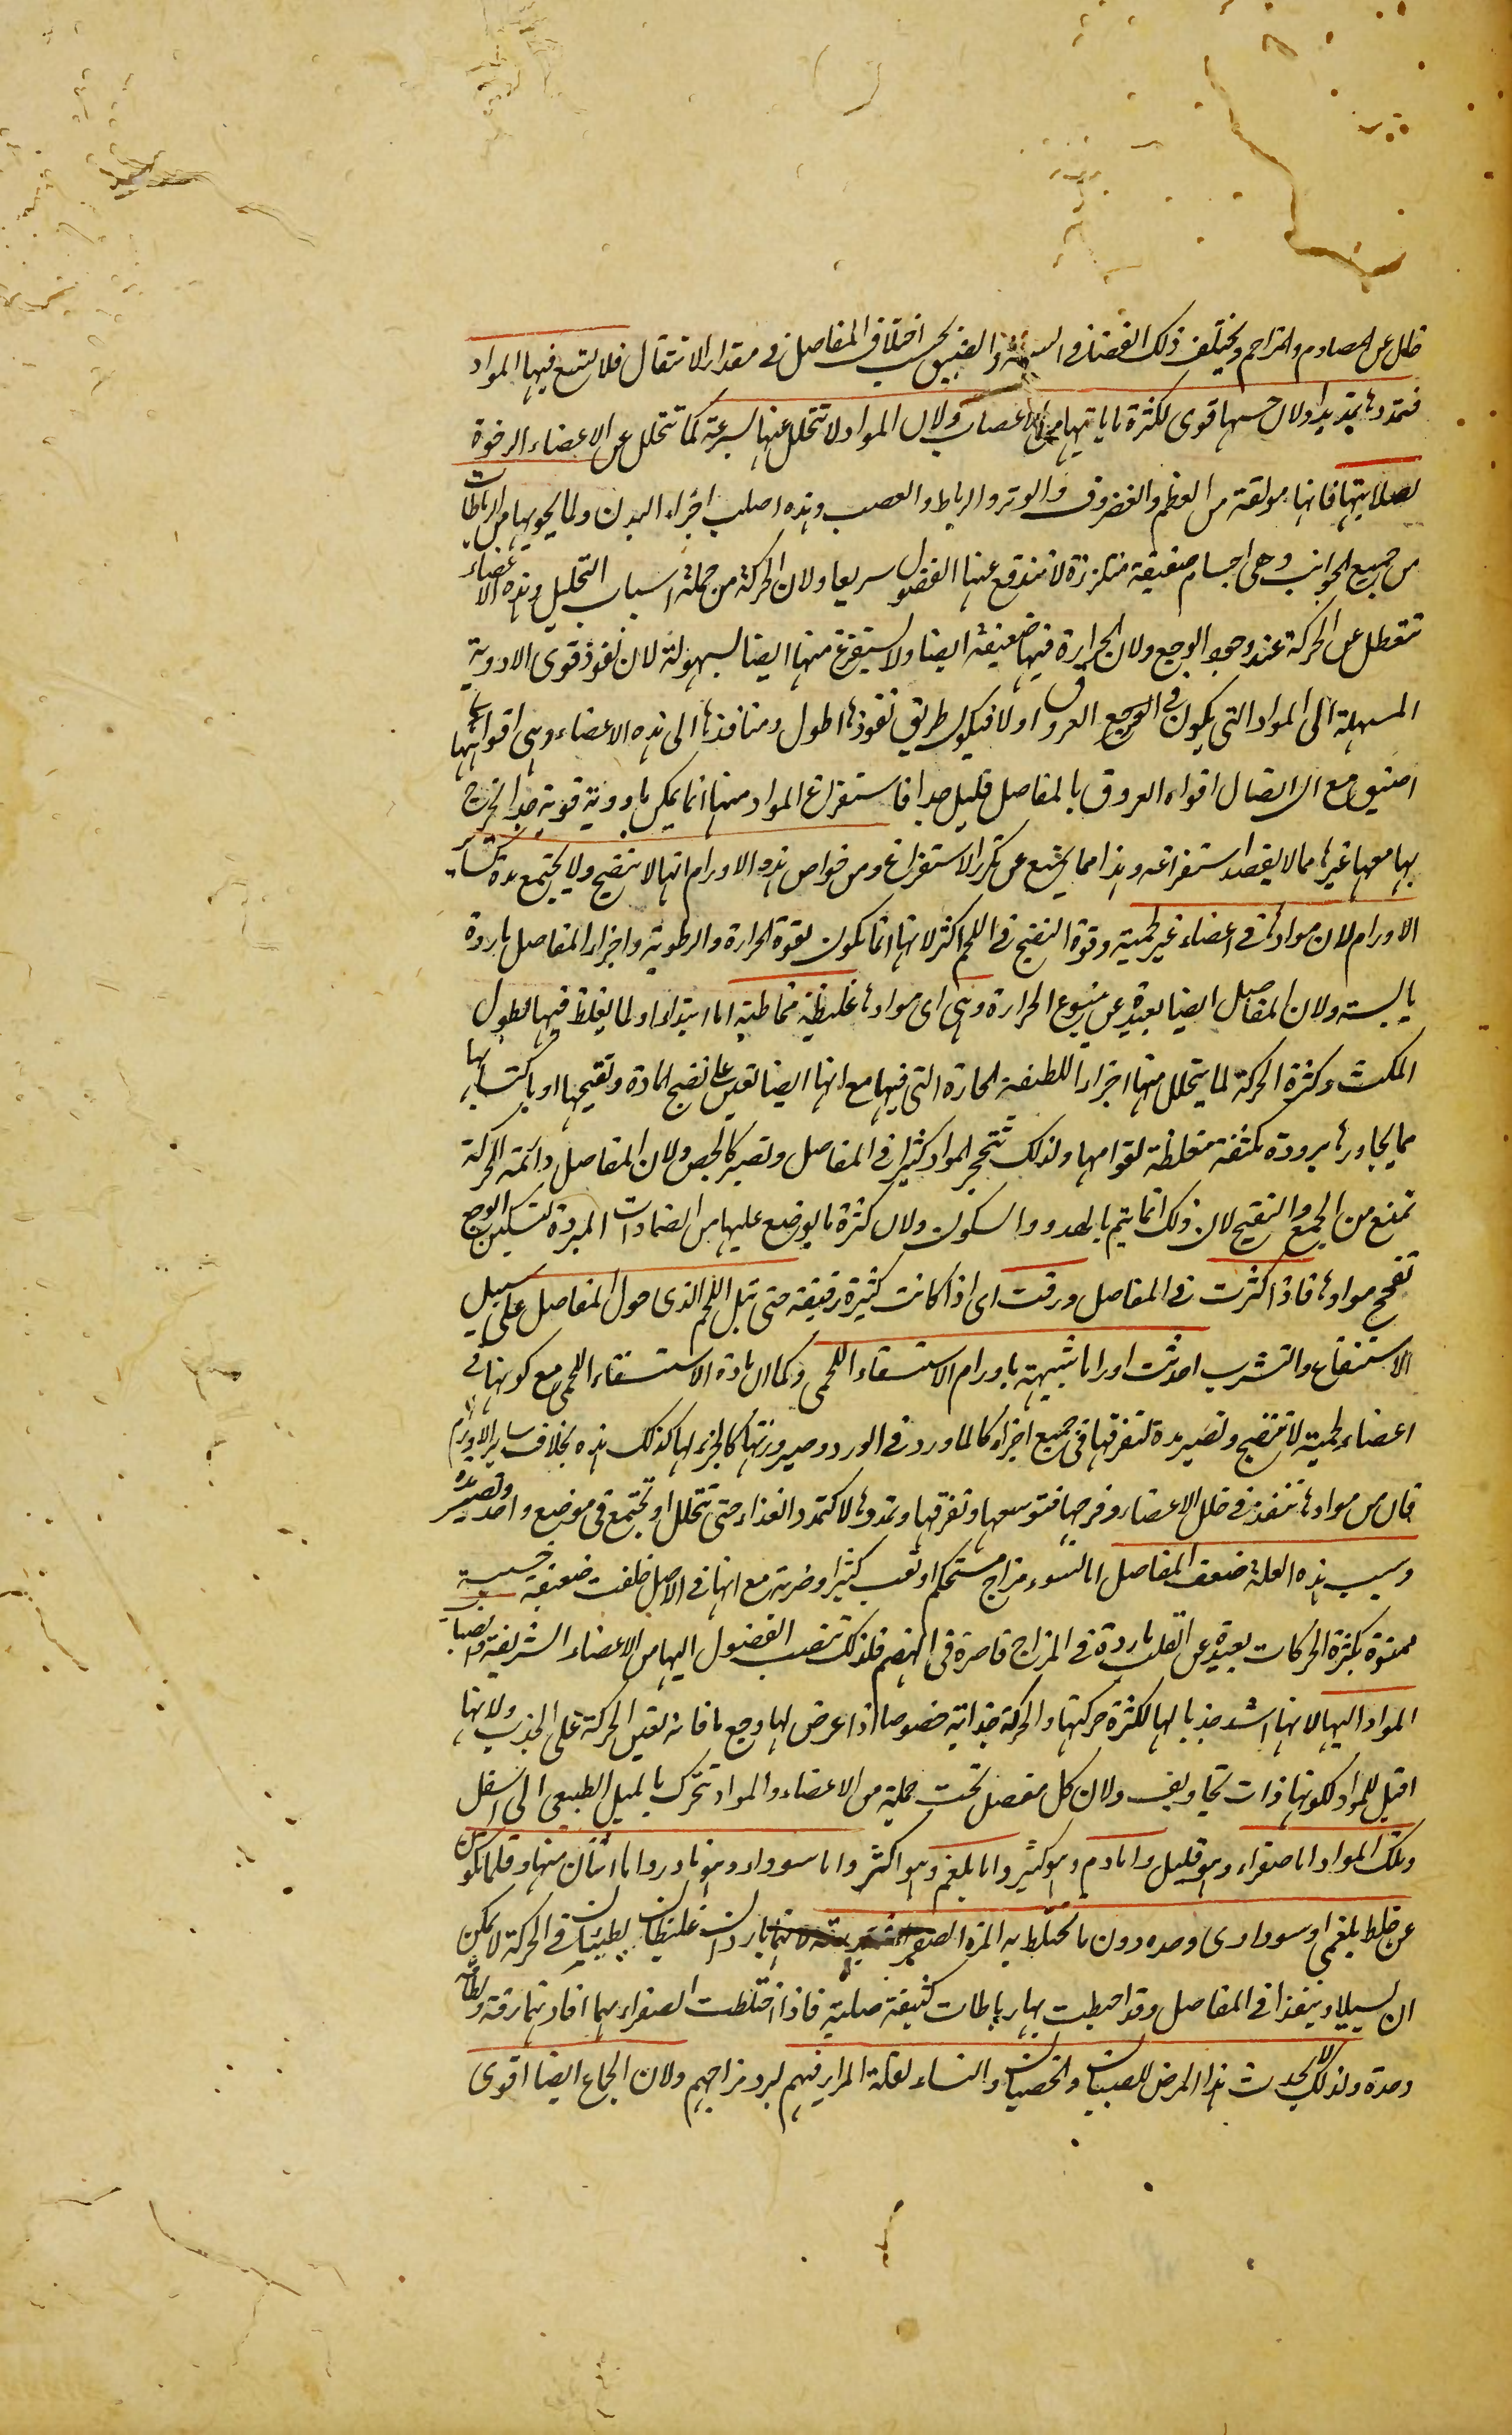 خال عن المصادم والمزاحم ويختلف ذلك الفضاء في السعة والضيق بحسب اختلاف المفاصل في مقدار الانتقال فلا يتسع فيها المواد
فتمددها تمديدا ولان حسها قوى لكثرة ما ياتيها من الاعصاب ولان المواد لا تتحلل عنها بسرعة كما تتحلل عن الاعضاء الرخوة
لصلابتها فانها مولفة من العظم والغضروف والوتر والرباط والعصب وهذه اصلب اجزاء البدن ولما يحويها من الرباطات
من جميع الجوانب وهى اجسام صفيقة متلززة لا تندفع عنها الفضول سريعا ولان الحركة من جملة اسباب التحليل وهذه الاعضاء
تتعطل عن الحركة عند وجود الوجع ولان الحرارة فيها ضعيفة ايضا ولا يستفرغ منها ايضا بسهولة لان نفوذ قوى الادوية
المسهلة الى المواد التى يكون في العروق اولا فيكون طريق نفوذها اطول ومنافذها الى هذه الاعضاء وهى افواهها
اضيق مع ان اتصال افواه العروق بالمفاصل قليل جدا فاستفراغ المواد منها انما يمكن بادوية قوية جدا يخرج
بها معها غيرها مما لا يقصد استفراغه وهذا مما يمنع عن تكرر الاستفراغ ومن خواص هذه الاورام انها لا ينضج ولا يجتمع مدة كساير
الاورام لان موادها في اعضاء غير لحمية وقوة النضج في اللحم اكثر لانها انما تكون لقوة الحرارة والرطوبة واجزاء المفاصل باردة
يابسة ولان المفاصل ايضا بعيدة عن ينبوع الحرارة وهى اى موادها غليظة مخاطية اما ابتداءا ولما يغلظ فيها لطول
المكث وكثرة الحركة لما يتحلل منها اجزاء اللطيفة الحارة التى فيها مع انها ايضا تعين على نضج المادة وتقيحها او باكتسابها
مما يجاورها برودة مكثفة مغلظة لقوامها ولذلك تتحجر المواد كثيرا في المفاصل وتصير كالجص ولان المفاصل دائمة الحركة
تمنع من الجمع والتقيح لان ذلك انما يتم بالهدو والسكون ولان كثرة ما يوضع عليها من الضمادات المبردة لتسكين الوجع
تفجج موادها فاذا كثرت في المفاصل ورقت اى اذا كانت كثيرة رقيقة حتى تبل اللحم الذى حول المفاصل على سبيل
الاستنقاع والتشرب احدثت اوراما شبيهة باورام الاستسقاء اللحمى وكما ان مادة الاستسقاء اللحمى مع كونها في
اعضاء لحمية لا تنضج وتصير مدة لتفرقها في جميع اجزاء كالماورد في الورد وصيرورتها كالجزء لها كذلك هذه بخلاف ساير الاورام
فان من موادها تنفذ في خلل الاعضاء وفرجها فتوسعها وتفرقها وتمددها لا كتمدد الغذاء حتى تتحلل او تجتمع في موضع واحد وتصير مدة
وسبب هذه العلة ضعف المفاصل اما لسوء مزاج مستحكم او تعب كثير او ضربة مع انها في الاصل خلقت ضعيفة
ممنوة بكثرة الحركات بعيدة عن القلب باردة في المزاج قاصرة في الهضم فلذلك تنصب الفضول اليها من الاعضاء الشريفة وانصباب
المواد اليها لانها اشد جذبا لها لكثرة حركتها والحركة جذابة خصوصا اذا عرض لها وجع ما فانه تعين الحركة على الجذب ولانها
اقبل للمواد لكونها ذات تجاويف ولان كل مفصل تحت جملة من الاعضاء والمواد تتحرك بالميل الطبيعى الى اسفل
وتلك المواد اما صفراء وهو قليل واما دم وهو كثير واما بلغم وهو اكثر واما سوداء وهو نادر واما اثنان منها وقلما يكون
عن خلط بلغمى او سوداوى وحده دون ما يختلط به المرة الصفراء باردان غليظان بطيئان في الحركة لا يمكن
ان يسيلا وينفذا في المفاصل وقد احيطت بها رباطات كثيفة صلبة فاذا اختلطت الصفراء بهما افادتهما رقة ولطافة
وحدة ولذلك لا يحدث هذا المرض للصبيان والخصيان والنساء لقلة المرار فيهم لبرد مزاجهم ولان الجماع ايضا اقوى